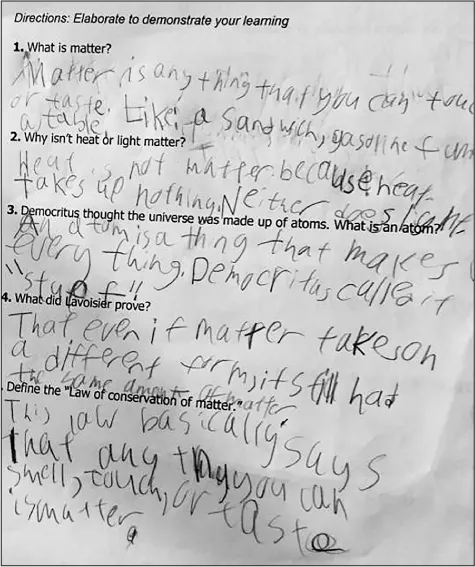 Directions: Elaborate to demonstrate your learning
1. What is matter?
Matter is any thing that you can touc
or taste. Like: a sandwich, gasoline f
a table
2. Why isn't heat or light matter?
Heat is not matter because heat
takes up nothing. Neither does light
3. Democritus thought the universe was made up of atoms. What is an atom?
An atom is a thing that makes
every thing. Democritus called it
"stuff"
4. What did Lavoisier prove?
That even if matter takes on
a different form, it still had
the same amont of matter
. Define the "Law of conservation of matter."
This law basically says
that any thing you can
smell, touch, or taste
is matter.